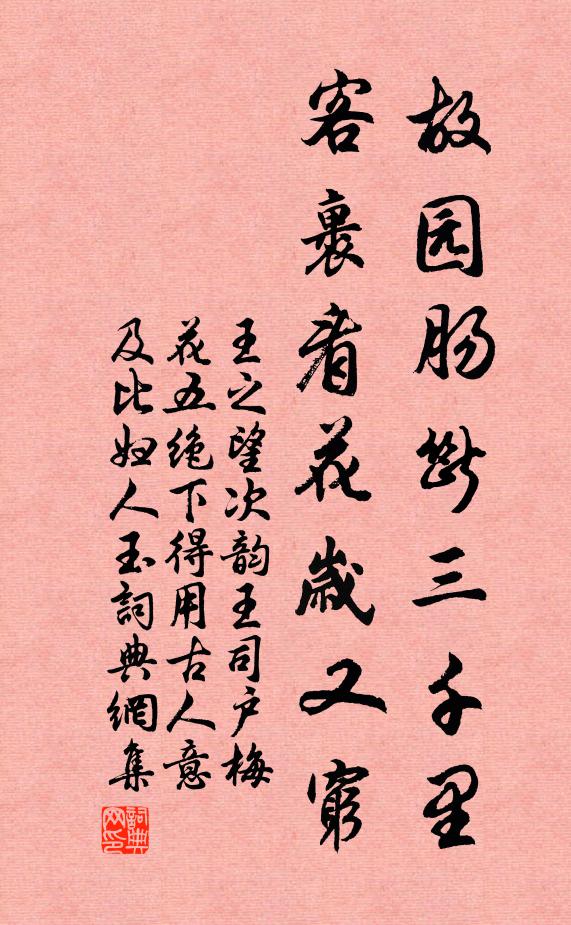 故园肠断三千里
客裏看花歲又窮
王之望次韵王司户梅
花五绝下得用古人意
及比妇人玉詞典網集
詞典网印